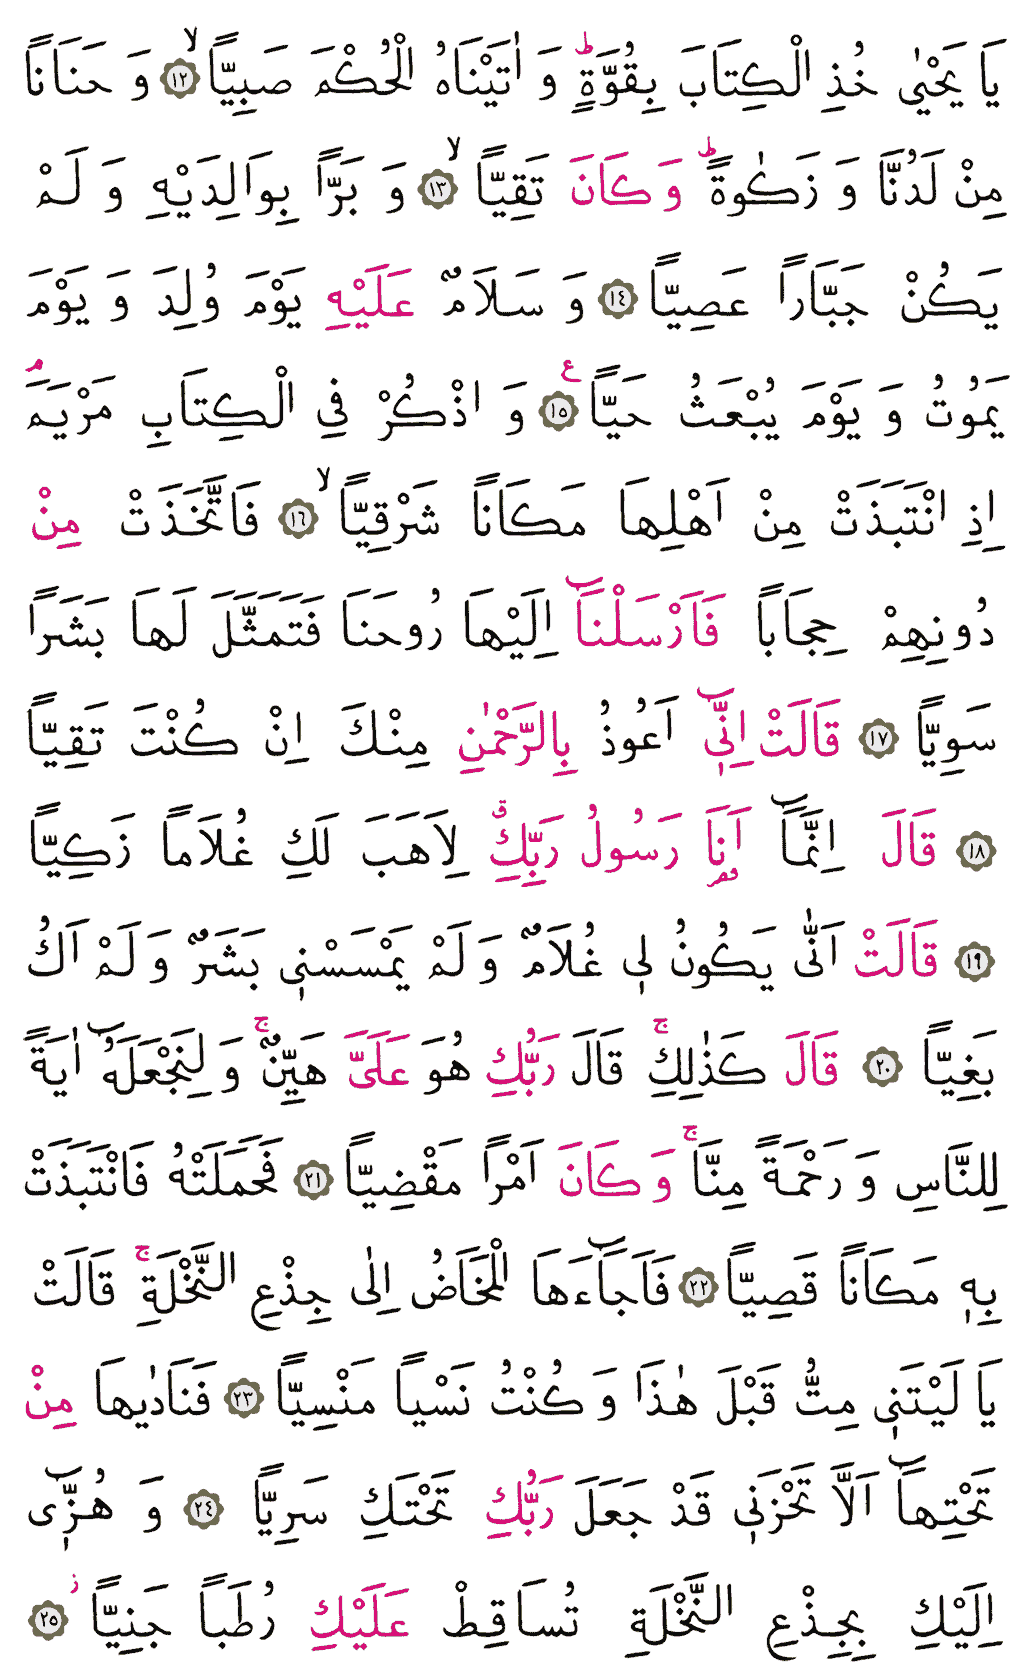 يَا يَحْيٰى خُذِ الْكِتَابَ بِقُوَّةٍۜ وَ اٰتَيْنَاهُ الْحُكْمَ صَبِيًّاۙ ﴿١٢﴾ وَ حَنَانًا
مِنْ لَدُنَّا وَ زَكٰوةًۜ وَ كَانَ تَقِيًّاۙ ﴿١٣﴾ وَ بَرًّا بِوَالِدَيْهِ وَ لَمْ
يَكُنْ جَبَّارًا عَصِيًّا ﴿١٤﴾ وَ سَلَامٌ عَلَيْهِ يَوْمَ وُلِدَ وَ يَوْمَ
يَمُوتُ وَ يَوْمَ يُبْعَثُ حَيًّاࣖ ﴿١٥﴾ وَ اذْكُرْ فِي الْكِتَابِ مَرْيَمَۢ
اِذِ انْتَبَذَتْ مِنْ اَهْلِهَا مَكَانًا شَرْقِيًّاۙ ﴿١٦﴾ فَاتَّخَذَتْ مِنْ
دُونِهِمْ حِجَابًا فَاَرْسَلْنَٓا اِلَيْهَا رُوحَنَا فَتَمَثَّلَ لَهَا بَشَرًا
سَوِيًّا ﴿١٧﴾ قَالَتْ اِنّ۪ٓي اَعُوذُ بِالرَّحْمٰنِ مِنْكَ اِنْ كُنْتَ تَقِيًّا
﴿١٨﴾ قَالَ اِنَّمَٓا اَنَا۬ رَسُولُ رَبِّكِۗ لِاَهَبَ لَكِ غُلَامًا زَكِيًّا
﴿١٩﴾ قَالَتْ اَنّٰى يَكُونُ ل۪ي غُلَامٌ وَ لَمْ يَمْسَسْن۪ي بَشَرٌ وَ لَمْ اَكُ
بَغِيًّا ﴿٢٠﴾ قَالَ كَذٰلِكِۚ قَالَ رَبُّكِ هُوَ عَلَيَّ هَيِّنٌۚ وَ لِنَجْعَلَهُٓ اٰيَةً
لِلنَّاسِ وَ رَحْمَةً مِنَّاۚ وَ كَانَ اَمْرًا مَقْضِيًّا ﴿٢١﴾ فَحَمَلَتْهُ فَانْتَبَذَتْ
بِه۪ مَكَانًا قَصِيًّا ﴿٢٢﴾ فَاَجَٓاءَهَا الْمَخَاضُ اِلٰى جِذْعِ النَّخْلَةِۚ قَالَتْ
يَا لَيْتَن۪ي مِتُّ قَبْلَ هٰذَا وَ كُنْتُ نَسْيًا مَنْسِيًّا ﴿٢٣﴾ فَنَادٰيهَا مِنْ
تَحْتِهَٓا اَلَّا تَحْزَن۪ي قَدْ جَعَلَ رَبُّكِ تَحْتَكِ سَرِيًّا ﴿٢٤﴾ وَ هُزّ۪ٓي
اِلَيْكِ بِجِذْعِ النَّخْلَةِ تُسَاقِطْ عَلَيْكِ رُطَبًا جَنِيًّاۘ ﴿٢٥﴾